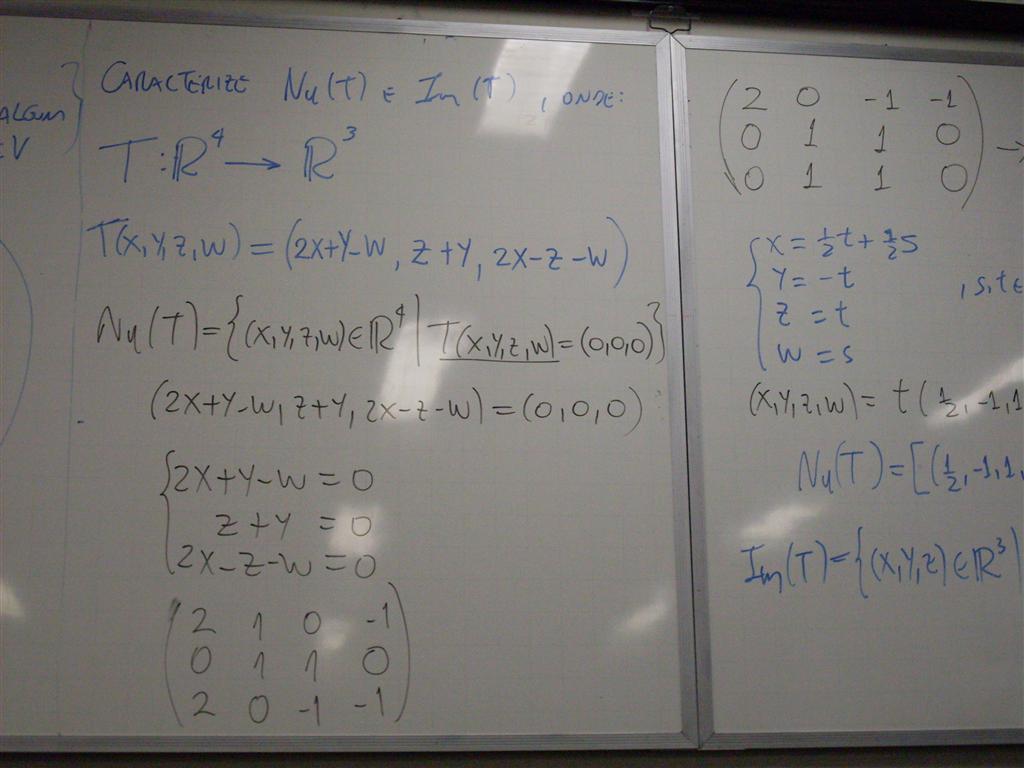 ALGUM
EV
CARACTERIZE Nu(T) E Im(T), ONDE:
T:ℝ⁴ → ℝ³
T(x,y,z,w) = (2x+y-w, z+y, 2x-z-w)
Nu(T) = {(x,y,z,w)∈ℝ⁴ | T(x,y,z,w) = (0,0,0)}
(2x+y-w, z+y, 2x-z-w) = (0,0,0)
2x+y-w = 0
z+y = 0
2x-z-w = 0
2 1 0 -1
0 1 1 0
2 0 -1 -1
2 0 -1 -1
0 1 1 0 →
0 1 1 0
x = 1/2t + 1/2s
y = -t , s,t∈
z = t
w = s
(x,y,z,w) = t(1/2, -1, 1
Nu(T) = [(1/2, -1, 1,
Im(T) = {(x,y,z)∈ℝ³